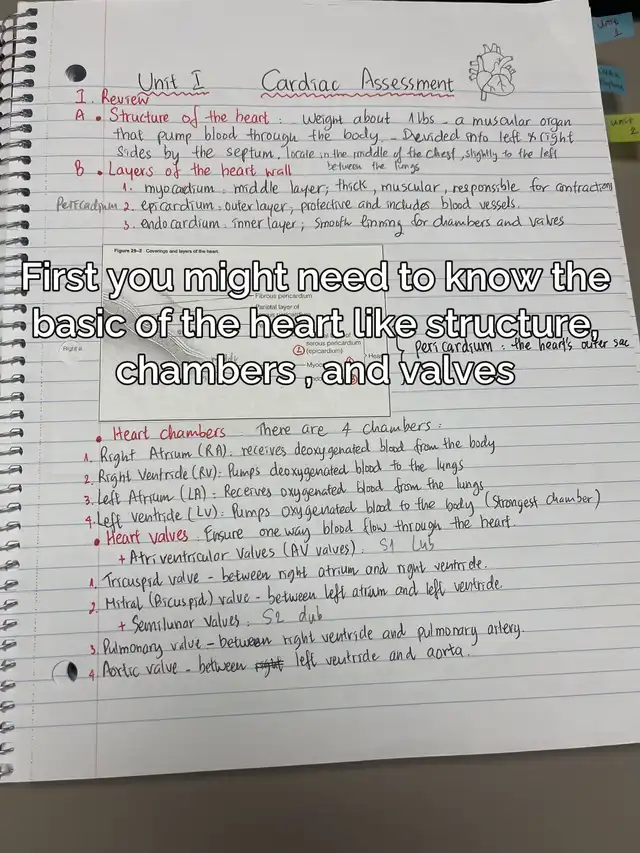 Unit I Cardiac Assessment
I. Review
A. Structure of the heart: Weight about 1lbs - a muscular organ
that pump blood through the body. - Devided into left & right
sides by the septum, locate in the middle of the chest, slightly to the left
between the lungs
B. Layers of the heart wall
1. myocardium: middle layer; thick, muscular, responsible for contraction
Pericardium 2. epicardium: outer layer; protective and includes blood vessels.
3. endocardium: inner layer; smooth linning for chambers and valves
Figure 29-2 Coverings and layers of the heart.
Fibrous pericardium
Parietal layer of
First you might need to know the
basic of the heart like structure,
chambers , and valves
serous pericardium
(epicardium)
pericardium: the heart's outer sac
• Heart chambers There are 4 chambers:
1. Right Atrium (RA): receives deoxygenated blood from the body
2. Right Ventride (RV): Pumps deoxygenated blood to the lungs
3. Left Atrium (LA): Receives oxygenated blood from the lungs
4. Left ventride (LV): Pumps oxygenated blood to the body (Strongest chamber)
• Heart valves: Ensure one way blood flow through the heart.
+ Atriventricular Valves (AV valves): S1 Lub
1. Tricuspid valve - between right atrium and right ventride.
2. Mitral (Bicuspid) valve - between left atrium and left ventride.
+ Semilunar Valves: S2 dub
3. Pulmonary valve - between right ventride and pulmonary artery.
4. Aortic valve - between right left ventride and aorta.
unit
2